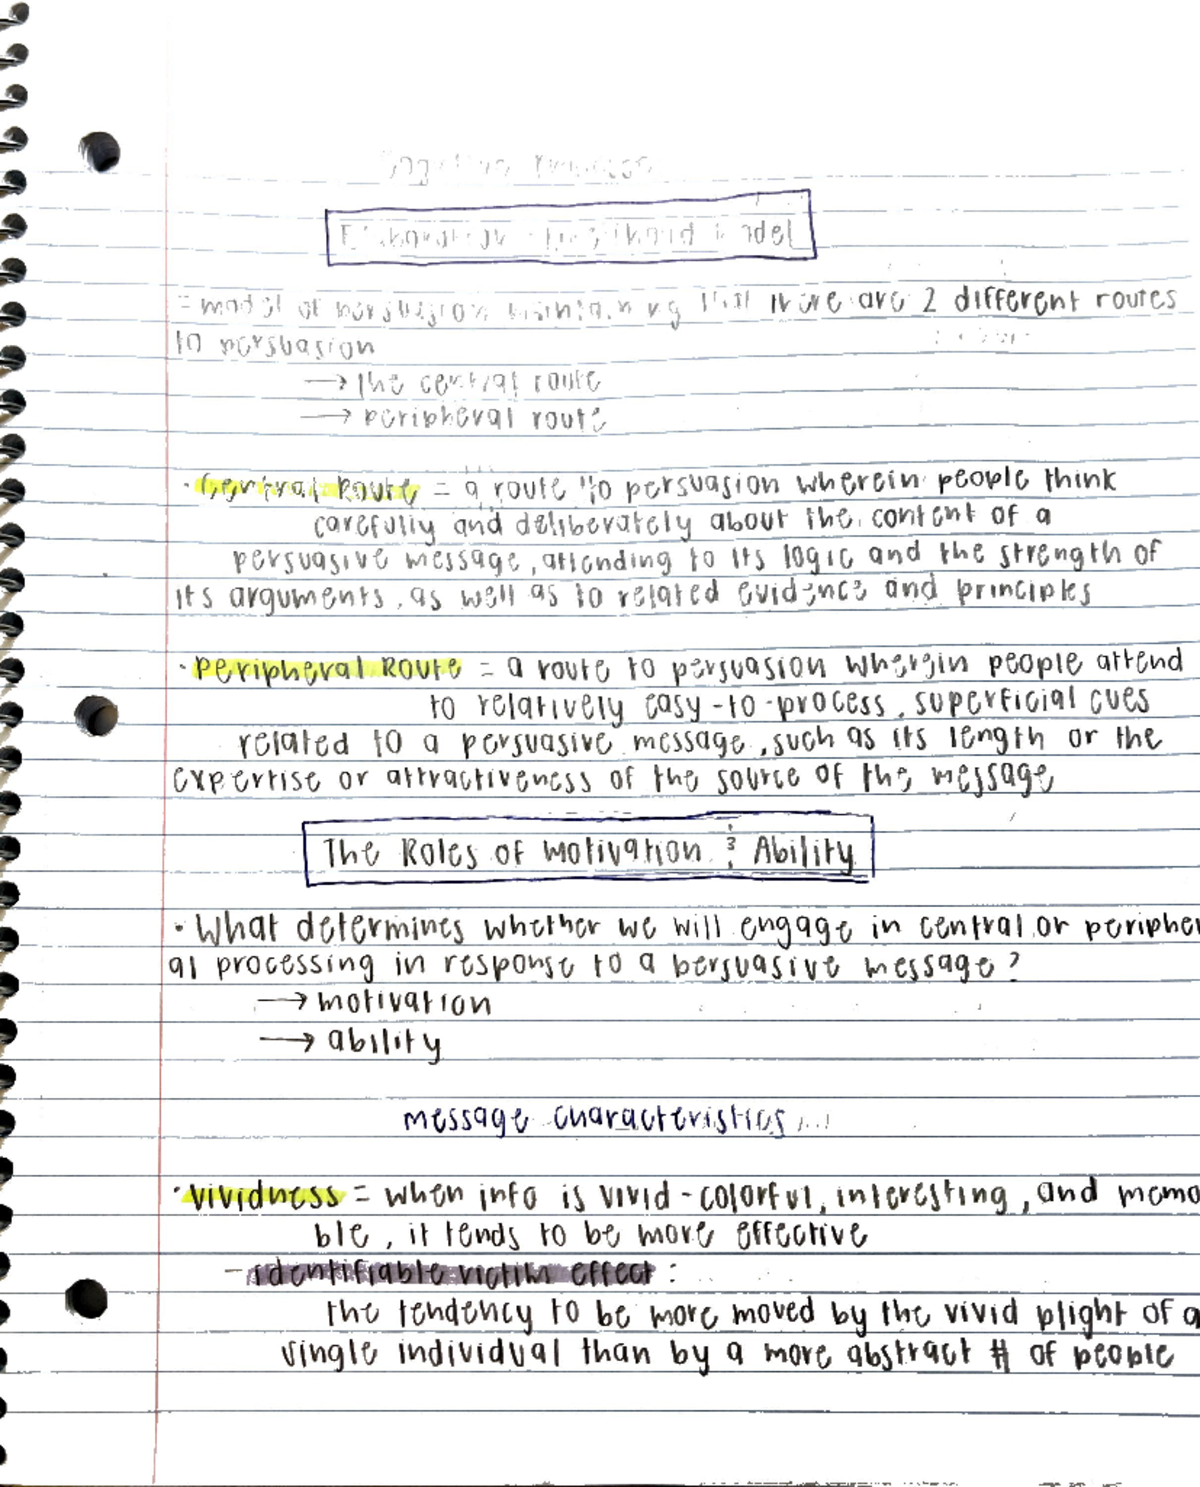 Elaboration Likelihood Model
= model of persuasion maintaining that there are 2 different routes
to persuasion
→ the central route
→ peripheral route
· Central Route = a route to persuasion wherein people think
carefully and deliberately about the content of a
persuasive message, attending to its logic and the strength of
its arguments, as well as to related evidence and principles
· Peripheral Route = a route to persuasion wherein people attend
to relatively easy-to-process, superficial cues
related to a persuasive message, such as its length or the
expertise or attractiveness of the source of the message
The Roles of Motivation & Ability
· What determines whether we will engage in central or peripher
al processing in response to a persuasive message?
→ motivation
→ ability
message characteristics...
· vividness = when info is vivid - colorful, interesting, and memo
ble, it tends to be more effective
- identifiable victim effect :
the tendency to be more moved by the vivid plight of a
single individual than by a more abstract # of people